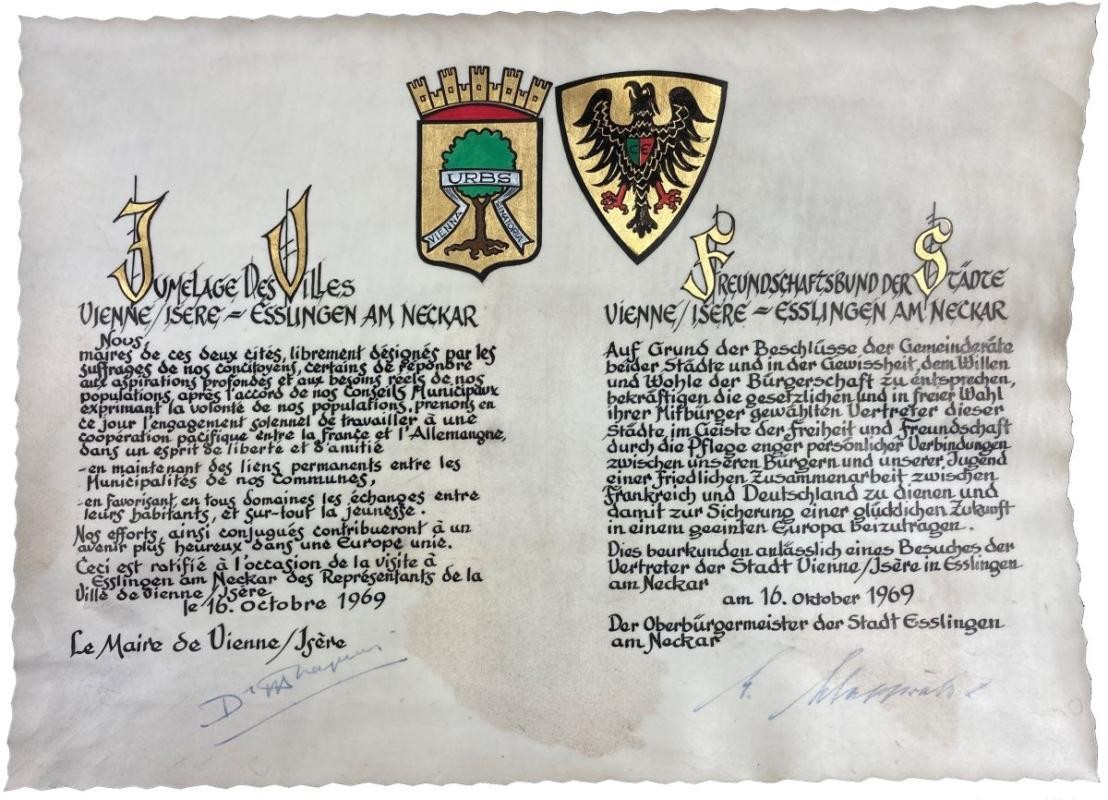 URBS
VIENNA
SENATORIA
C E
Jumelage Des Villes
Vienne/Isère = Esslingen am Neckar
Nous,
maires de ces deux cités, librement désignés par les
suffrages de nos concitoyens, certains de répondre
aux aspirations profondes et aux besoins réels de nos
populations, après l'accord de nos Conseils Municipaux
exprimant la volonté de nos populations, prenons en
ce jour l'engagement solennel de travailler à une
coopération pacifique entre la France et l'Allemangne,
dans un esprit de liberté et d'amitié
-en maintenant des liens permanents entre les
Municipalités de nos communes,
-en favorisant, en tous domaines les échanges entre
leurs habitants, et sur-tout la jeunesse.
Nos efforts, ainsi conjugués contribueront à un
avenir plus heureux dans une Europe unie.
Ceci est ratifié à l'occasion de la visite à
Esslingen am Neckar des Représentants de la
Ville de Vienne/Isère
le 16. Octobre 1969
Le Maire de Vienne/Isère
Freundschaftsbund der Städte
Vienne/Isère = Esslingen am Neckar
Auf Grund der Beschlüsse der Gemeinderäte
beider Städte und in der Gewissheit, dem Willen
und Wohle der Bürgerschaft zu entsprechen,
bekräftigen die gesetzlichen und in freier Wahl
ihrer Mitbürger gewählten Vertreter dieser
Städte im Geiste der Freiheit und Freundschaft
durch die Pflege enger persönlicher Verbindungen
zwischen unseren Bürgern und unserer Jugend
einer friedlichen Zusammenarbeit zwischen
Frankreich und Deutschland zu dienen und
damit zur Sicherung einer glücklichen Zukunft
in einem geeinten Europa beizutragen.
Dies beurkunden anlässlich eines Besuches der
Vertreter der Stadt Vienne/Isère in Esslingen
am Neckar
am 16. Oktober 1969
Der Oberbürgermeister der Stadt Esslingen
am Neckar